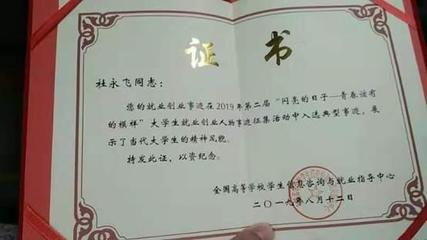 证书
杜永飞同志：
您的就业创业事迹在2019年第二届“闪亮的日子—青春该有
的模样”大学生就业创业人物事迹征集活动中入选典型事迹，展
示了当代大学生的精神风貌。
特发此证，以资纪念。
全国高等学校学生信息咨询与就业指导中心
二〇一九年八月十二日